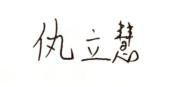 仇立慧